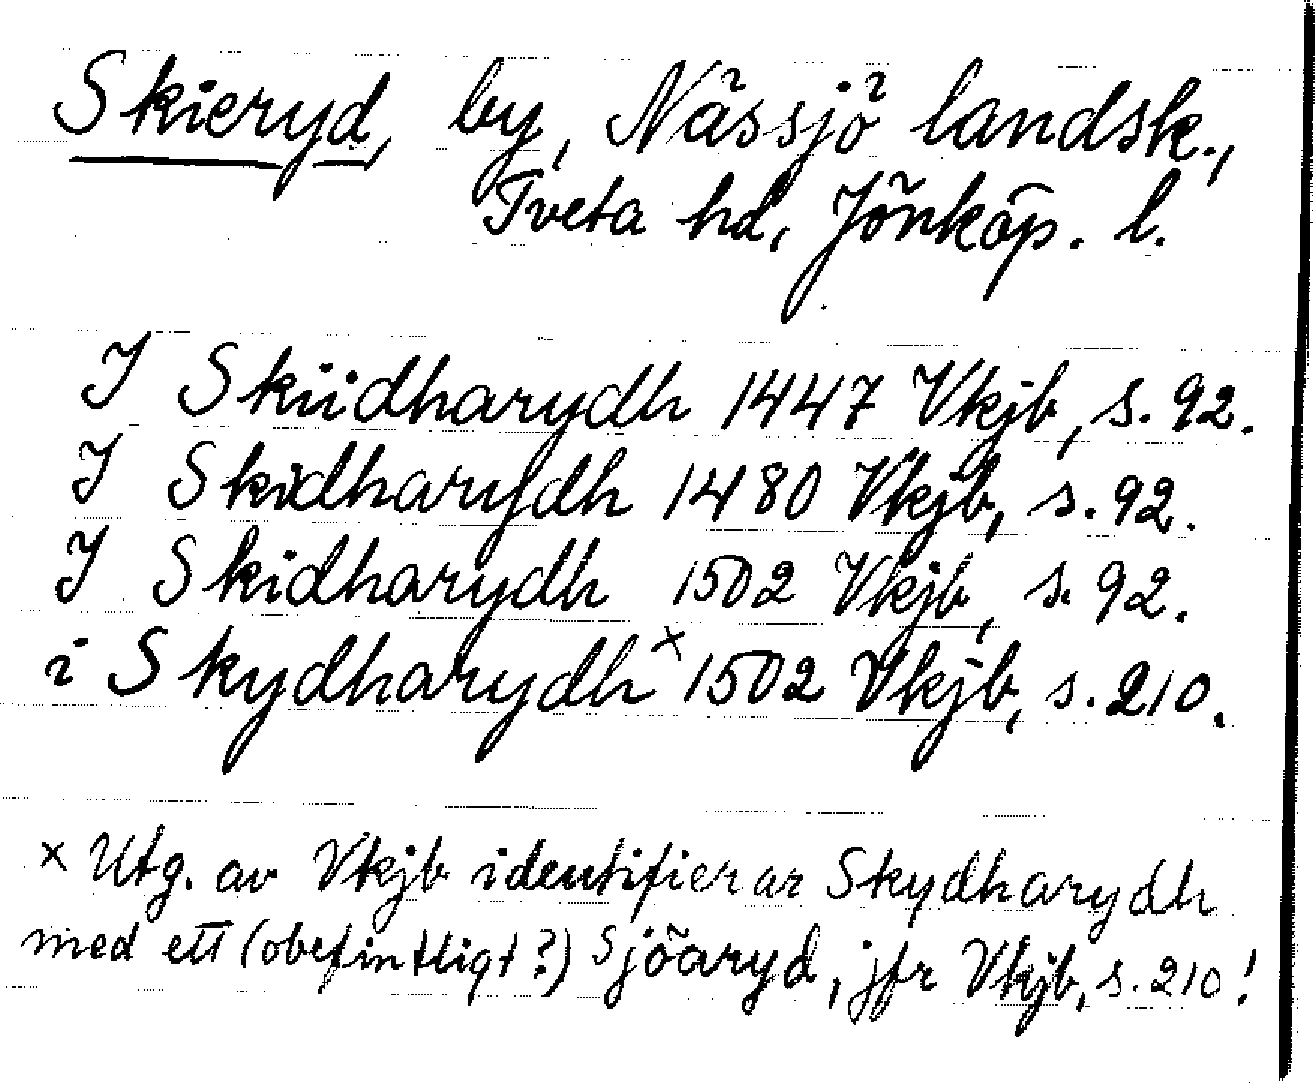 Skieryd, by, Nässjö landsk.,
Tveta hd, Jönköp. l.
I Skiidharydh 1447 Vkjb, s. 92.
I Skidharydh 1480 Vkjb, s. 92.
I Skidharydh 1502 Vkjb, s. 92.
i Skydharydh x 1502 Vkjb, s. 210.
x Utg. av Vkjb identifierar Skydharydh
med ett (obefintligt?) Sjöaryd, jfr Vkjb, s. 210!